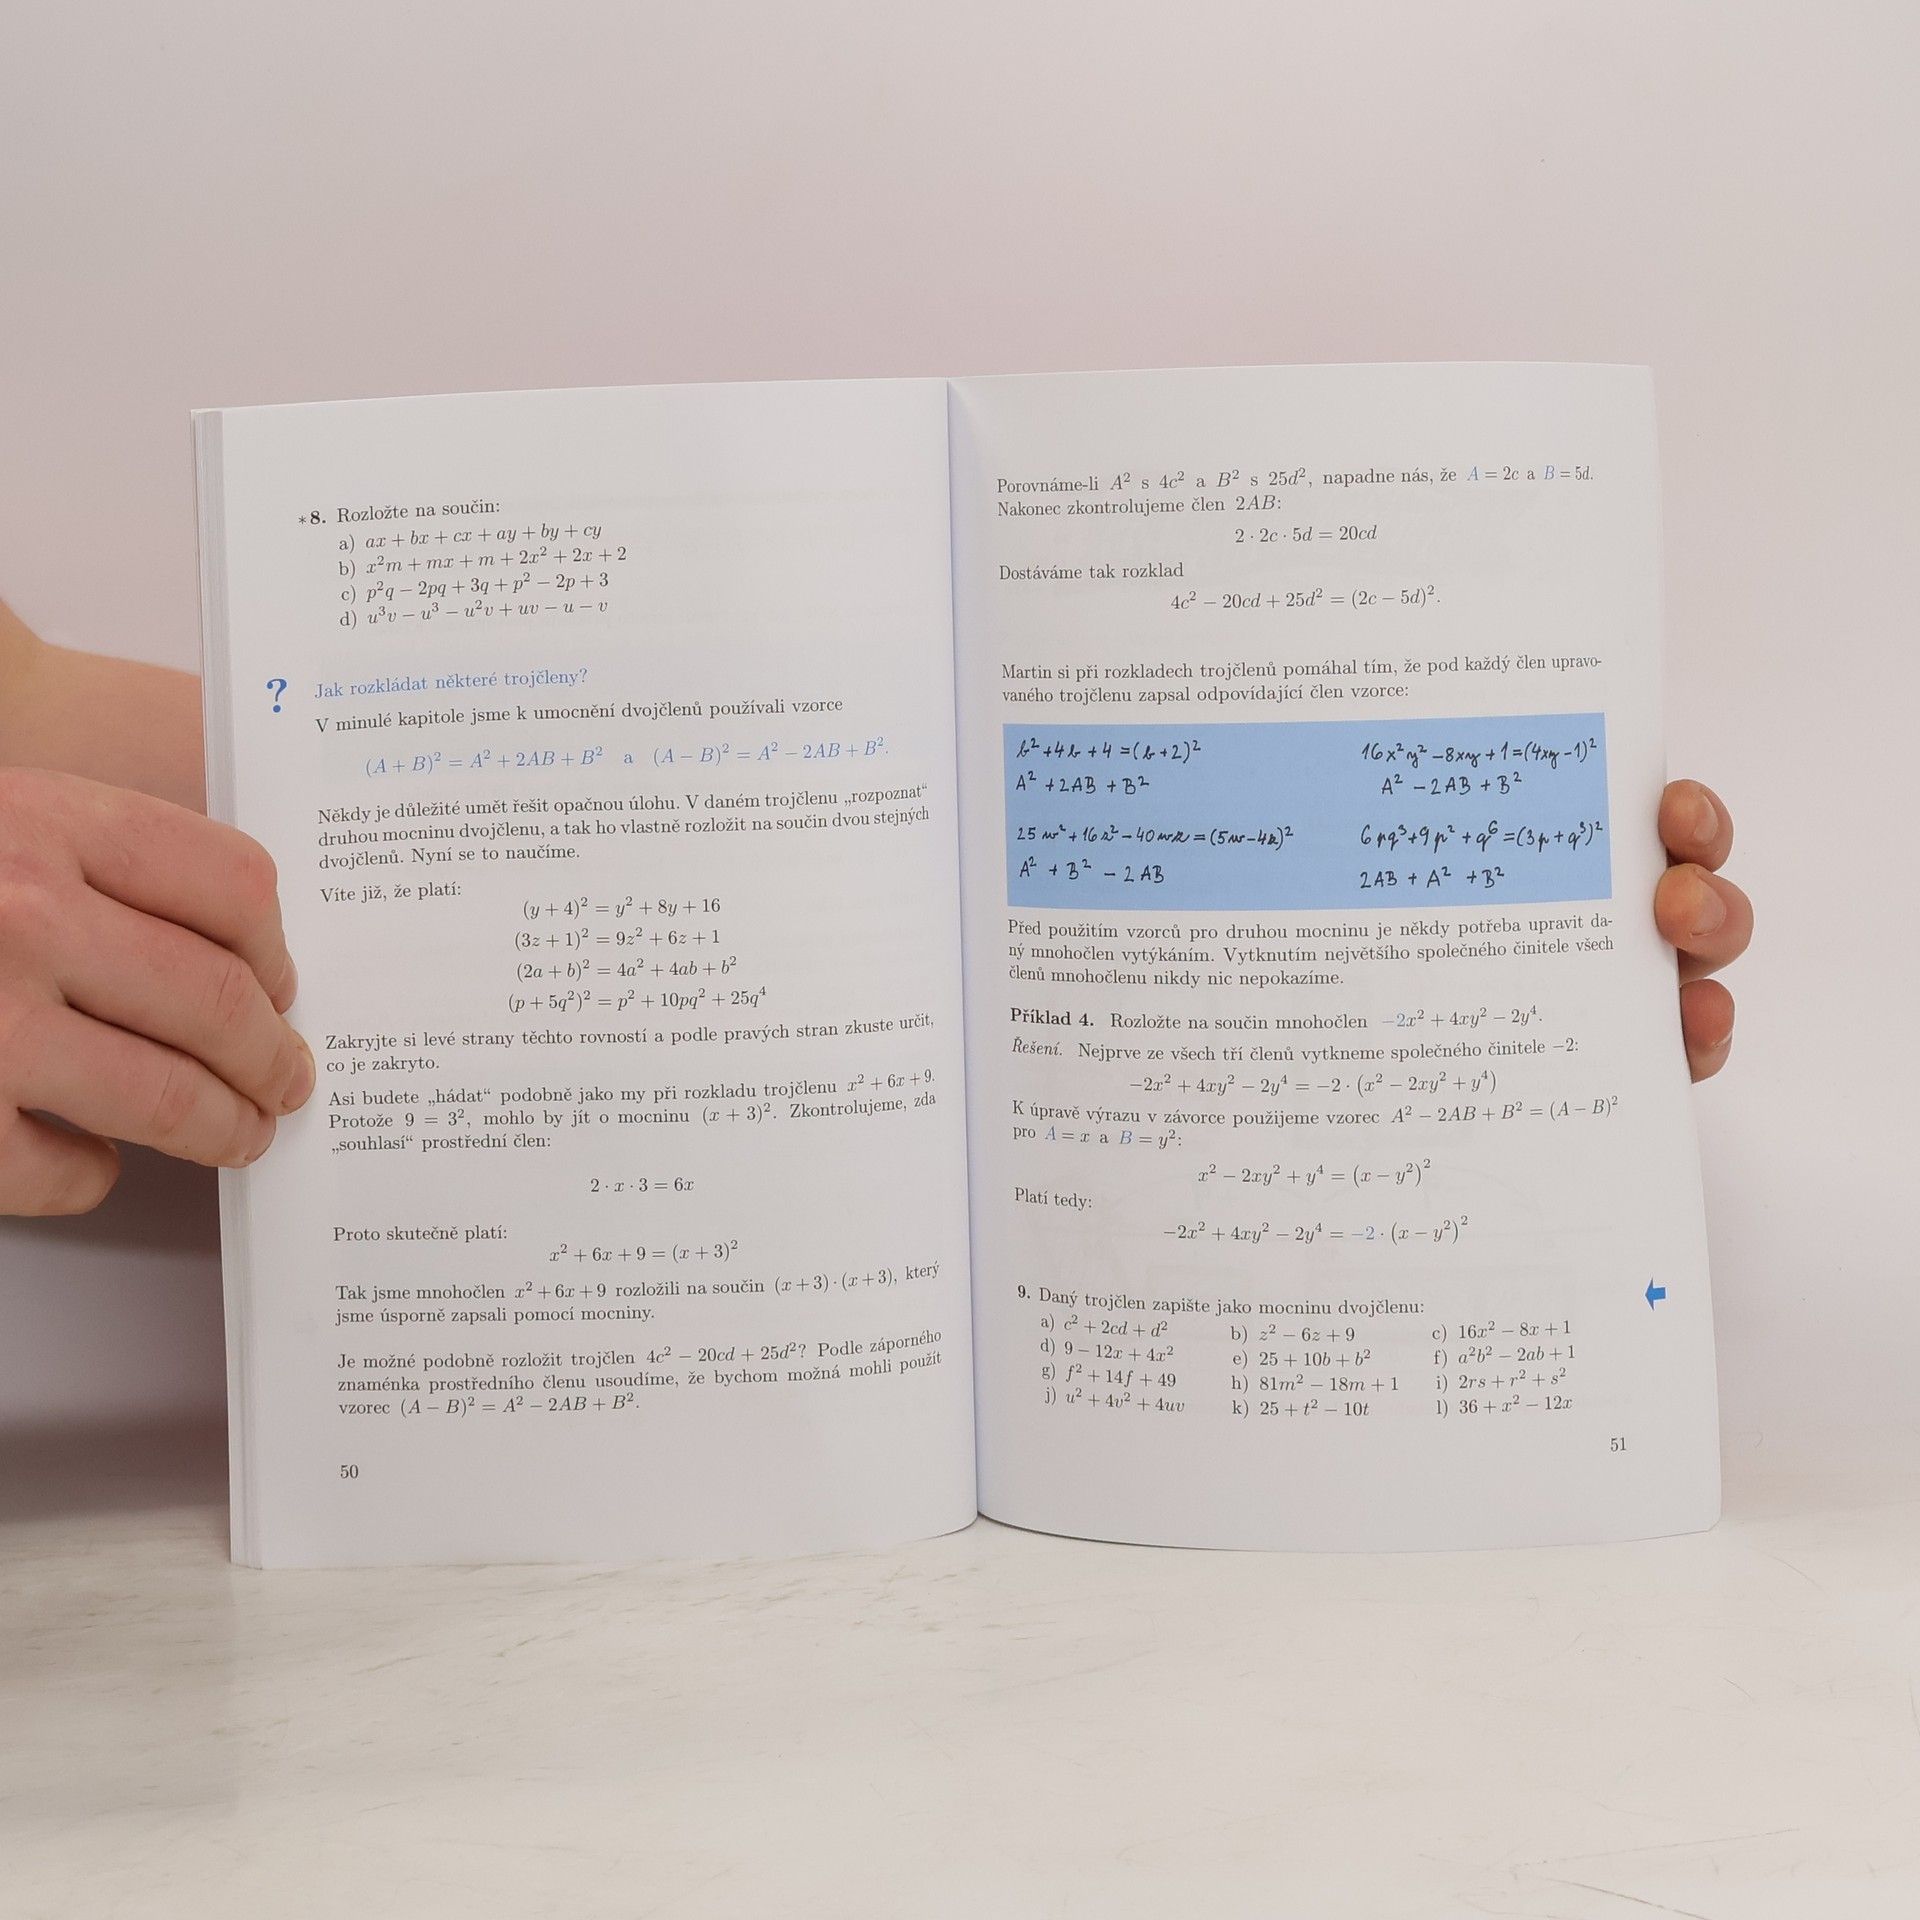 *8. Rozložte na součin:
a) ax + bx + cx + ay + by + cy
b) x²m + mx + m + 2x² + 2x + 2
c) p²q − 2pq + 3q + p² − 2p + 3
d) u³v − u³ − u²v + uv − u − v
? Jak rozkládat některé trojčleny?
V minulé kapitole jsme k umocnění dvojčlenů používali vzorce
(A + B)² = A² + 2AB + B² a (A − B)² = A² − 2AB + B².
Někdy je důležité umět řešit opačnou úlohu. V daném trojčlenu „rozpoznat“
druhou mocninu dvojčlenu, a tak ho vlastně rozložit na součin dvou stejných
dvojčlenů. Nyní se to naučíme.
Víte již, že platí:
(y + 4)² = y² + 8y + 16
(3z + 1)² = 9z² + 6z + 1
(2a + b)² = 4a² + 4ab + b²
(p + 5q²)² = p² + 10pq² + 25q⁴
Zakryjte si levé strany těchto rovností a podle pravých stran zkuste určit,
co je zakryto.
Asi budete „hádat“ podobně jako my při rozkladu trojčlenu x² + 6x + 9.
Protože 9 = 3², mohlo by jít o mocninu (x + 3)². Zkontrolujeme, zda
„souhlasí“ prostřední člen:
2 · x · 3 = 6x
Proto skutečně platí:
x² + 6x + 9 = (x + 3)²
Tak jsme mnohočlen x² + 6x + 9 rozložili na součin (x + 3) · (x + 3), který
jsme úsporně zapsali pomocí mocniny.
Je možné podobně rozložit trojčlen 4c² − 20cd + 25d²? Podle záporného
znaménka prostředního členu usoudíme, že bychom možná mohli použít
vzorec (A − B)² = A² − 2AB + B².
50
Porovnáme-li A² s 4c² a B² s 25d², napadne nás, že A = 2c a B = 5d.
Nakonec zkontrolujeme člen 2AB:
2 · 2c · 5d = 20cd
Dostáváme tak rozklad
4c² − 20cd + 25d² = (2c − 5d)².
Martin si při rozkladech trojčlenů pomáhal tím, že pod každý člen upravo-
vaného trojčlenu zapsal odpovídající člen vzorce:
b² + 4b + 4 = (b + 2)²
A² + 2AB + B²
16x²y² − 8xy + 1 = (4xy − 1)²
A² − 2AB + B²
25w² + 16z² − 40wz = (5w − 4z)²
A² + B² − 2AB
6pq³ + 9p² + q⁶ = (3p + q³)²
2AB + A² + B²
Před použitím vzorců pro druhou mocninu je někdy potřeba upravit da-
ný mnohočlen vytýkáním. Vytknutím největšího společného činitele všech
členů mnohočlenu nikdy nic nepokazíme.
Příklad 4. Rozložte na součin mnohočlen −2x² + 4xy² − 2y⁴.
Řešení. Nejprve ze všech tří členů vytkneme společného činitele −2:
−2x² + 4xy² − 2y⁴ = −2 · (x² − 2xy² + y⁴)
K úpravě výrazu v závorce použijeme vzorec A² − 2AB + B² = (A − B)²
pro A = x a B = y²:
x² − 2xy² + y⁴ = (x − y²)²
Platí tedy:
−2x² + 4xy² − 2y⁴ = −2 · (x − y²)²
9. Daný trojčlen zapište jako mocninu dvojčlenu:
a) c² + 2cd + d² b) z² − 6z + 9 c) 16x² − 8x + 1
d) 9 − 12x + 4x² e) 25 + 10b + b² f) a²b² − 2ab + 1
g) f² + 14f + 49 h) 81m² − 18m + 1 i) 2rs + r² + s²
j) u² + 4v² + 4uv k) 25 + t² − 10t l) 36 + x² − 12x
51